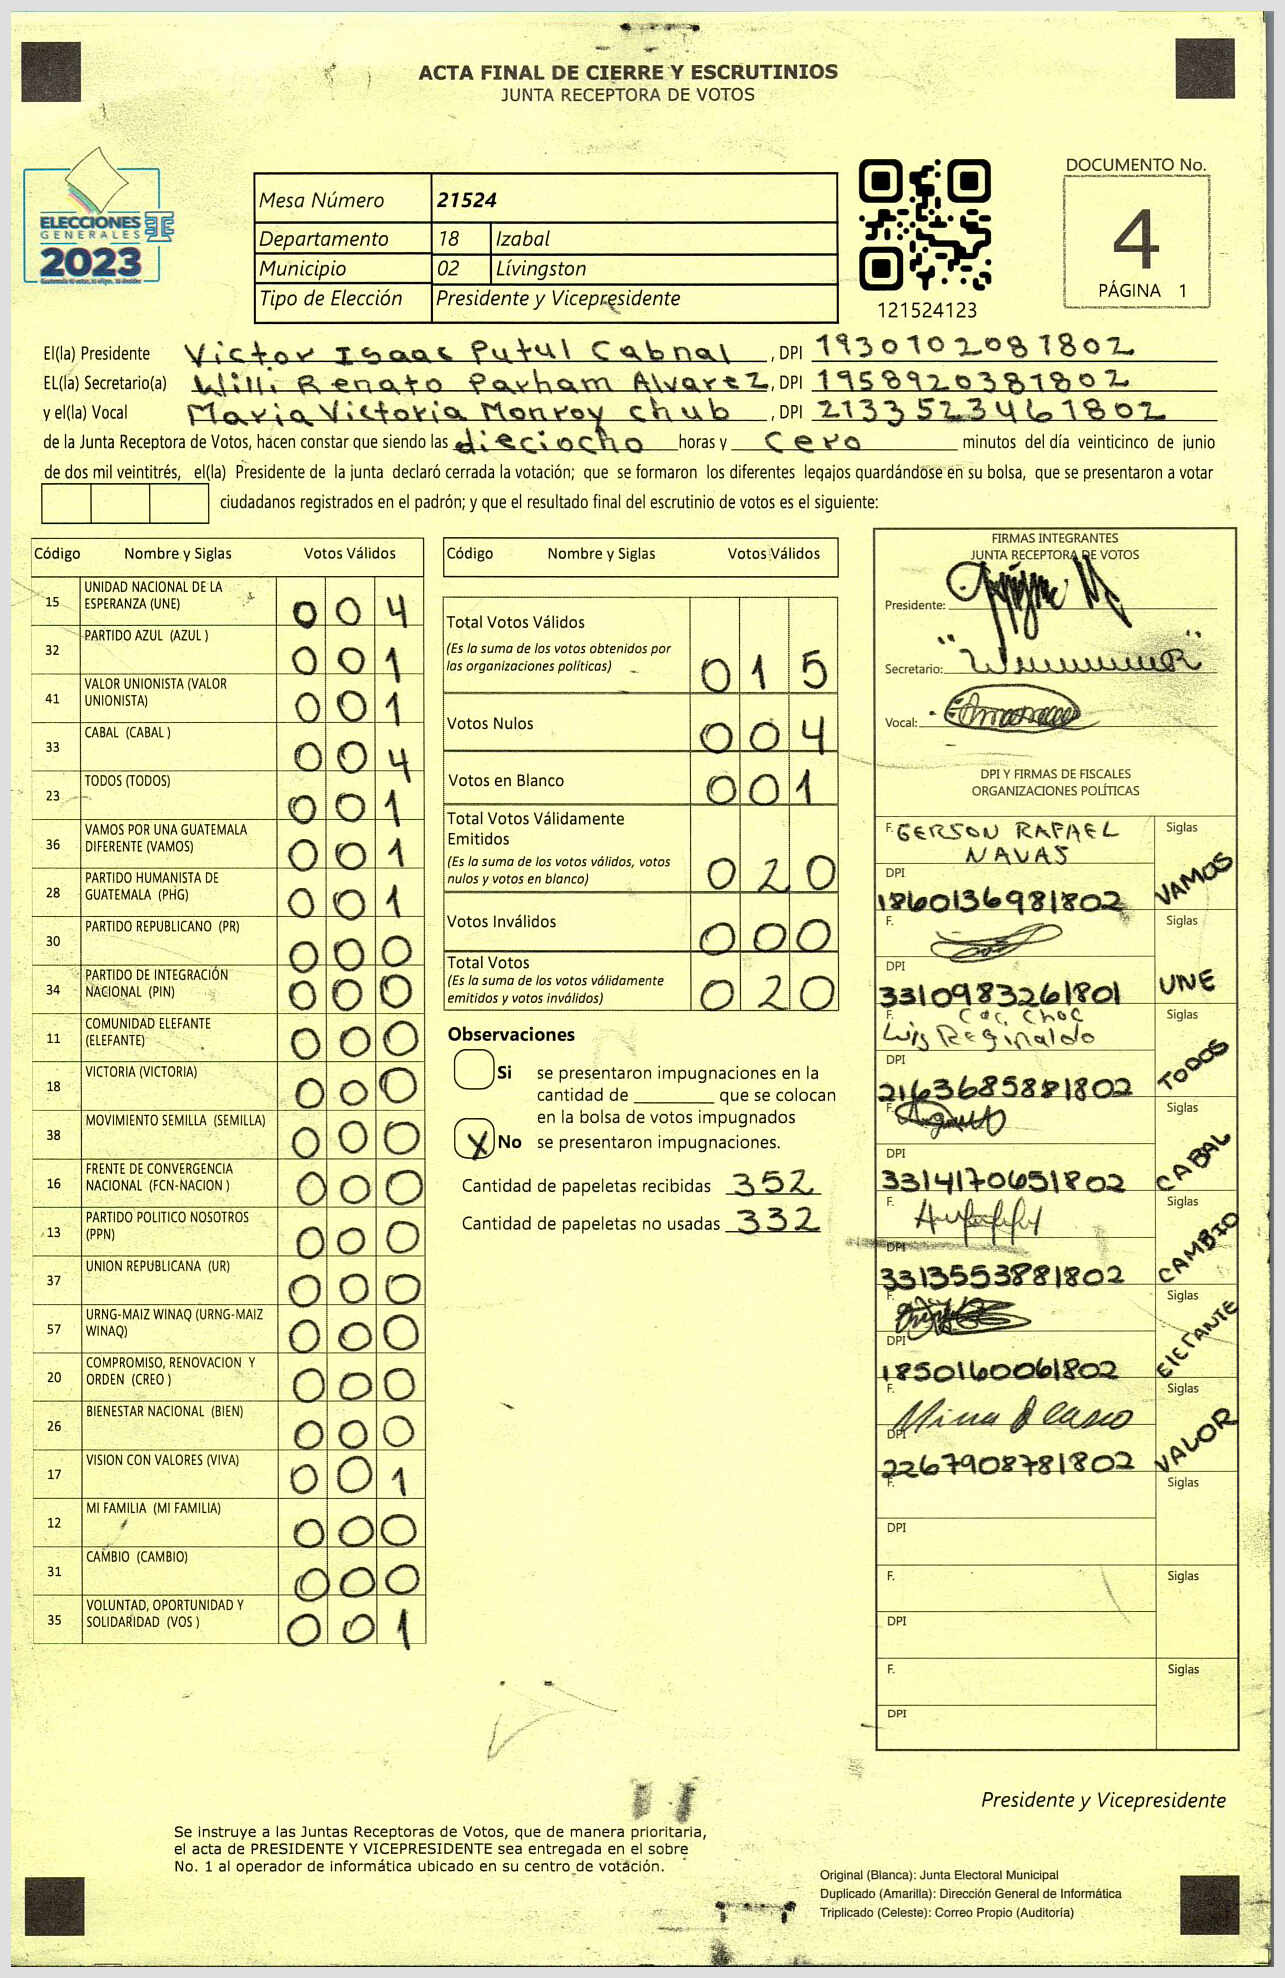 ACTA FINAL DE CIERRE Y ESCRUTINIOS
JUNTA RECEPTORA DE VOTOS
ELECCIONES
GENERALES
2023
Mesa Número 21524
Departamento 18 Izabal
Municipio 02 Lívingston
Tipo de Elección Presidente y Vicepresidente
121524123
DOCUMENTO No.
4
PÁGINA 1
El(la) Presidente Victor Isaac Putul Cabnal, DPI 1930102081802
EL(la) Secretario(a) Willi Renato Parham Alvarez, DPI 1958920381802
y el(la) Vocal Maria Victoria Monroy Chub, DPI 2133523461802
de la Junta Receptora de Votos, hacen constar que siendo las dieciocho horas y cero minutos del día veinticinco de junio
de dos mil veintitrés, el(la) Presidente de la junta declaró cerrada la votación; que se formaron los diferentes legajos guardándose en su bolsa, que se presentaron a votar
ciudadanos registrados en el padrón; y que el resultado final del escrutinio de votos es el siguiente:
Código Nombre y Siglas Votos Válidos
15 UNIDAD NACIONAL DE LA
ESPERANZA (UNE) 0 0 4
32 PARTIDO AZUL (AZUL ) 0 0 1
41 VALOR UNIONISTA (VALOR
UNIONISTA) 0 0 1
33 CABAL (CABAL ) 0 0 4
23 TODOS (TODOS) 0 0 1
36 VAMOS POR UNA GUATEMALA
DIFERENTE (VAMOS) 0 0 1
28 PARTIDO HUMANISTA DE
GUATEMALA (PHG) 0 0 1
30 PARTIDO REPUBLICANO (PR) 0 0 0
34 PARTIDO DE INTEGRACIÓN
NACIONAL (PIN) 0 0 0
11 COMUNIDAD ELEFANTE
(ELEFANTE) 0 0 0
18 VICTORIA (VICTORIA) 0 0 0
38 MOVIMIENTO SEMILLA (SEMILLA) 0 0 0
16 FRENTE DE CONVERGENCIA
NACIONAL (FCN-NACION ) 0 0 0
13 PARTIDO POLITICO NOSOTROS
(PPN) 0 0 0
37 UNION REPUBLICANA (UR) 0 0 0
57 URNG-MAIZ WINAQ (URNG-MAIZ
WINAQ) 0 0 0
20 COMPROMISO, RENOVACION Y
ORDEN (CREO ) 0 0 0
26 BIENESTAR NACIONAL (BIEN) 0 0 0
17 VISION CON VALORES (VIVA) 0 0 1
12 MI FAMILIA (MI FAMILIA) 0 0 0
31 CAMBIO (CAMBIO) 0 0 0
35 VOLUNTAD, OPORTUNIDAD Y
SOLIDARIDAD (VOS ) 0 0 1
Código Nombre y Siglas Votos Válidos
Total Votos Válidos
(Es la suma de los votos obtenidos por
las organizaciones políticas) 0 1 5
Votos Nulos 0 0 4
Votos en Blanco 0 0 1
Total Votos Válidamente
Emitidos
(Es la suma de los votos válidos, votos
nulos y votos en blanco) 0 2 0
Votos Inválidos 0 0 0
Total Votos
(Es la suma de los votos válidamente
emitidos y votos inválidos) 0 2 0
Observaciones
Si se presentaron impugnaciones en la
cantidad de ________ que se colocan
en la bolsa de votos impugnados
X No se presentaron impugnaciones.
Cantidad de papeletas recibidas 352
Cantidad de papeletas no usadas 332
FIRMAS INTEGRANTES
JUNTA RECEPTORA DE VOTOS
Presidente:
Secretario:
Vocal:
DPI Y FIRMAS DE FISCALES
ORGANIZACIONES POLÍTICAS
F. GERSON RAFAEL Siglas
NAVAS
DPI VAMOS
1860136981802
F. Siglas
DPI UNE
3310983261801
F. Coc. Choc Siglas
Luis Reginaldo
DPI TODOS
2163685881802
F. Siglas
DPI CABAL
3314170651802
F. Siglas
DPI CAMBIO
3313553881802
F. Siglas
DPI ElEFANTE
1850160061802
F. Siglas
DPI VALOR
2267908781802
F. Siglas
DPI
F. Siglas
DPI
F. Siglas
DPI
Presidente y Vicepresidente
Se instruye a las Juntas Receptoras de Votos, que de manera prioritaria,
el acta de PRESIDENTE Y VICEPRESIDENTE sea entregada en el sobre
No. 1 al operador de informática ubicado en su centro de votación.
Original (Blanca): Junta Electoral Municipal
Duplicado (Amarilla): Dirección General de Informática
Triplicado (Celeste): Correo Propio (Auditoría)